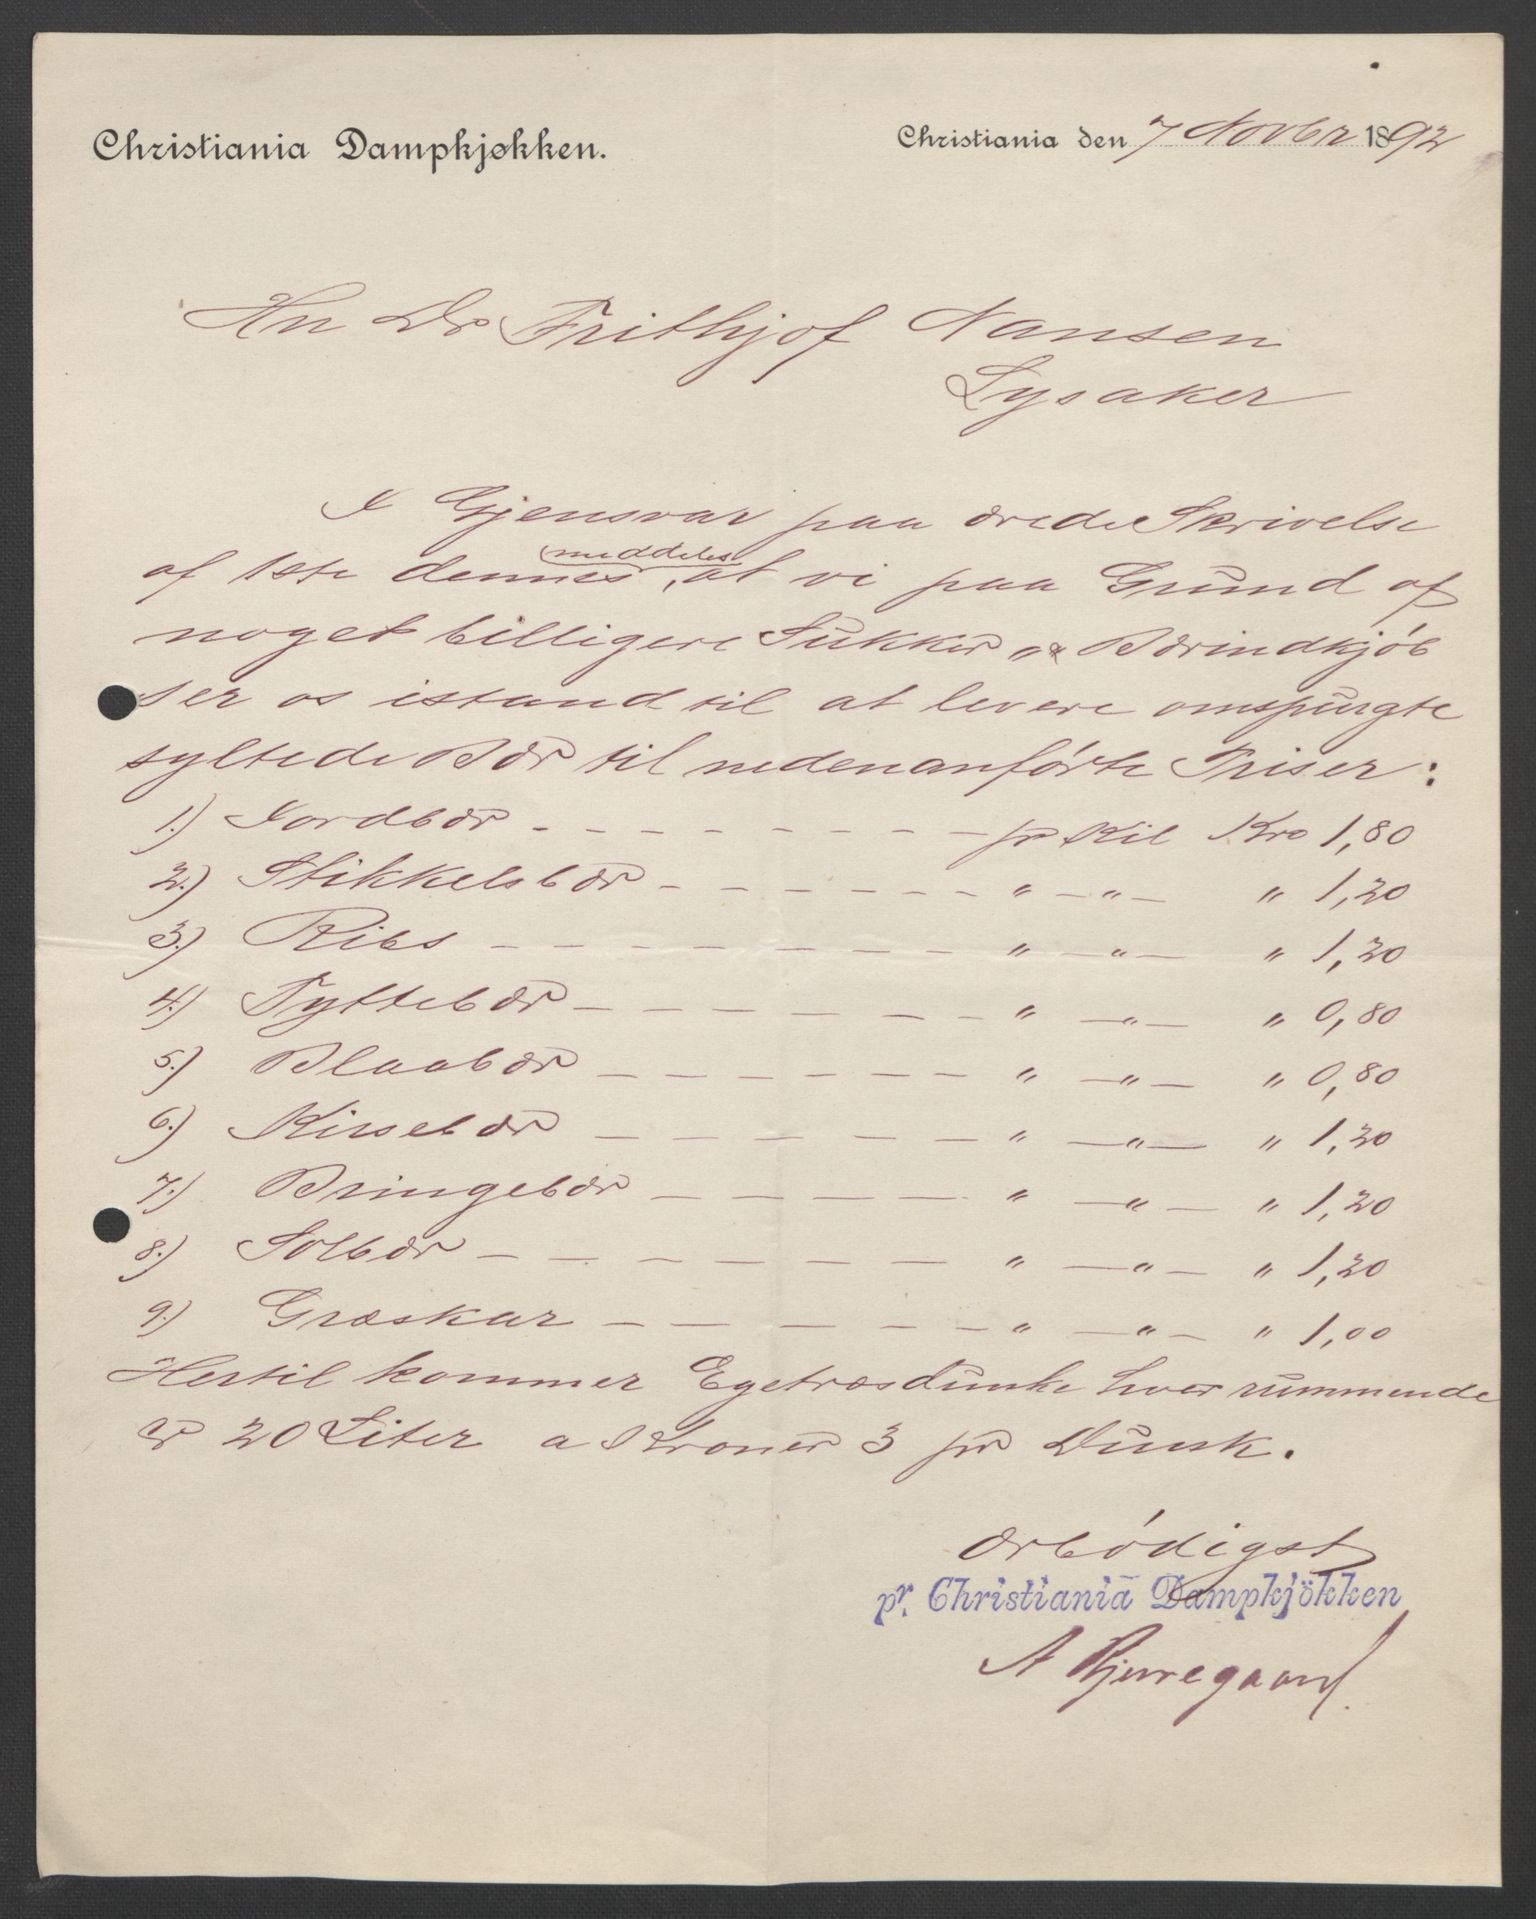 Christiania Dampkjøkken.
Christiania den 7 Novbr 1892
Hr Dr Frithjof Nansen
Lysaker
I Gjensvar paa ærede Skrivelse
af 1ste dennes meddeles, at vi paa Grund af
noget billigere Sukker & Bærindkjøb
ser os istand til at levere omspurgte
syltede Bær til nedenanførte Priser:
1.) Jordbær - - - - - - - - - pr Kil Kro 1,80
2.) Stikkelsbær - - - - - - - " - " - " 1,20
3.) Ribs - - - - - - - - " - " - " 1,20
4.) Tyttebær - - - - - - - - " - " - " 0,80
5.) Blaabær - - - - - - - - " - " - " 0,80
6.) Kirsebær - - - - - - " - " - " 1,20
7.) Bringebær - - - - - - " - " - " 1,20
8.) Solbær - - - - - - - - " - " - " 1,20
9.) Græskar - - - - - - - " - " - " 1,00
Hertil kommer Egetræsdunke hver rummende
20 Liter a Kroner 3 pr Dunk.
Ærbødigst
pr. Christiania Dampkjökken
A Bjerregaard